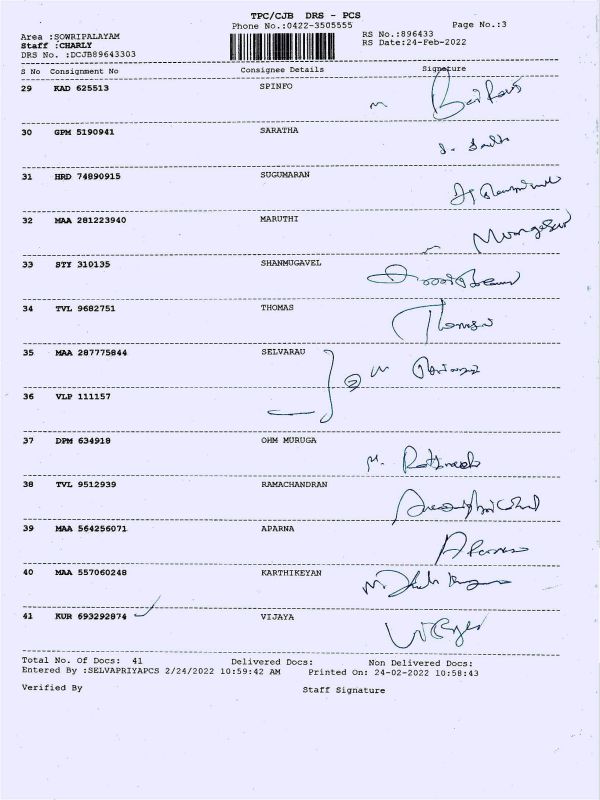 TPC/CJB DRS - PCS
Phone No.:0422-3505555 Page No.:3
Area :SOWRIPALAYAM RS No.:896433
Staff :CHARLY RS Date:24-Feb-2022
DRS No. :DCJB89643303
S No Consignment No Consignee Details Signature
29 KAD 625513 SPINFO
30 GPM 5190941 SARATHA
31 HRD 74890915 SUGUMARAN
32 MAA 281223940 MARUTHI
33 STY 310135 SHANMUGAVEL
34 TVL 9682751 THOMAS Thomas
35 MAA 287775844 SELVARAU
36 VLP 111157
37 DPM 634918 OHM MURUGA
38 TVL 9512939 RAMACHANDRAN
39 MAA 564256071 APARNA
40 MAA 557060248 KARTHIKEYAN
41 KUR 693292874 VIJAYA
Total No. Of Docs: 41 Delivered Docs: Non Delivered Docs:
Entered By :SELVAPRIYAPCS 2/24/2022 10:59:42 AM Printed On: 24-02-2022 10:58:43
Verified By Staff Signature